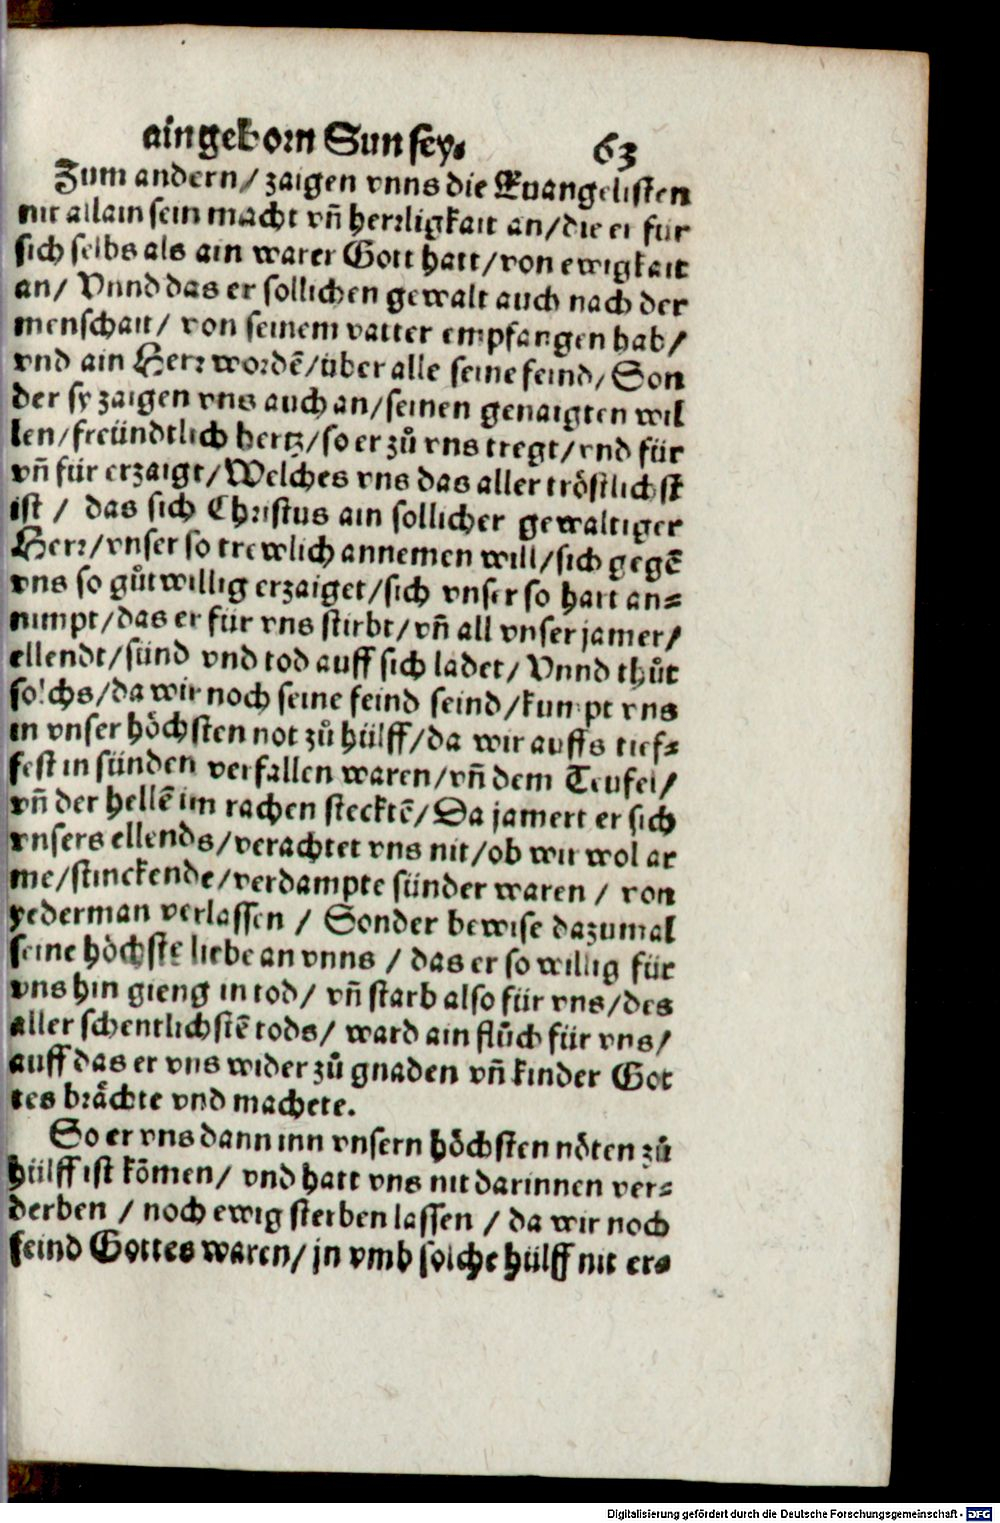 aingeborn Sun sey. 63
Zum andern/ zaigen vnns die Euangelisten
nit allain sein macht vñ herrligkait an/die er für
sich selbs als ain warer Gott hatt/von ewigkait
an/ Vnnd das er sollichen gewalt auch nach der
menschait/ von seinem vatter empfangen hab/
vnd ain Herr wordē/über alle seine feind/Son
der sy zaigen vns auch an/seinen genaigten wil
len/freündtlich hertz/so er zů vns tregt/vnd für
vñ für erzaigt/Welches vns das aller tröstlichst
ist / das sich Christus ain sollicher gewaltiger
Herr/vnser so trewlich annemen will/sich gegē
vns so gůtwillig erzaiget/sich vnser so hart an-
nimpt/das er für vns stirbt/vñ all vnser jamer/
ellendt/sünd vnd tod auff sich ladet/ Vnnd thůt
solchs/da wir noch seine feind seind/kumpt vns
in vnser höchsten not zů hülff/da wir auffs tief-
fest in sünden verfallen waren/vñ dem Teufel/
vñ der hellē im rachen stecktē/Da jamert er sich
vnsers ellends/verachtet vns nit/ob wir wol ar
me/stinckende/verdampte sünder waren / von
yederman verlassen / Sonder bewise dazumal
seine höchste liebe an vnns / das er so willig für
vns hin gieng in tod/ vñ starb also für vns/des
aller schentlichstē tods/ ward ain flůch für vns/
auff das er vns wider zů gnaden vñ kinder Got
tes brächte vnd machete.
So er vns dann inn vnsern höchsten nöten zů
hülff ist kōmen/ vnd hatt vns nit darinnen ver-
derben / noch ewig sterben lassen / da wir noch
feind Gottes waren/jn vmb solche hülff nit ers
Digitalisierung gefördert durch die Deutsche Forschungsgemeinschaft - DFG